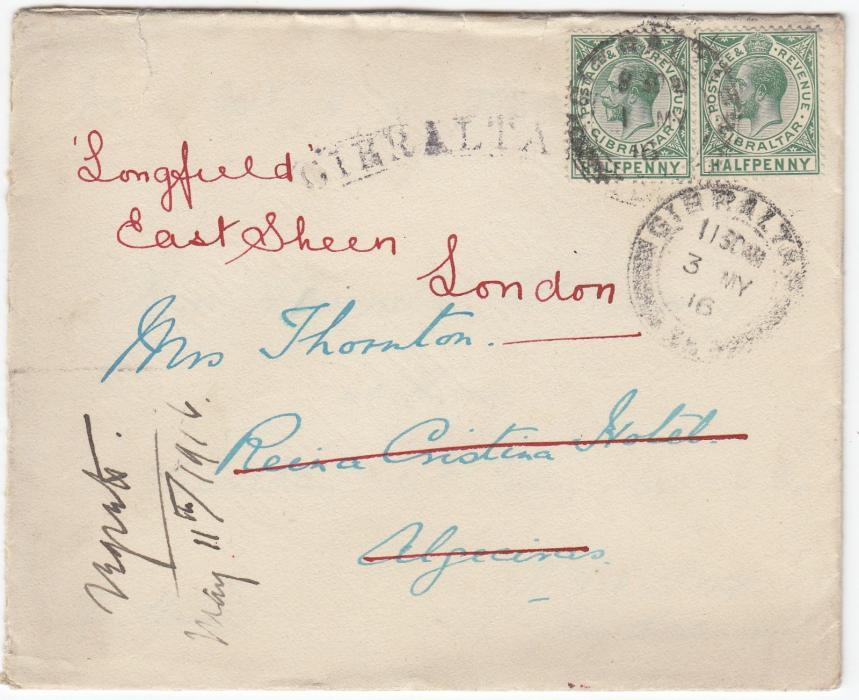 POSTAGE & REVENUE
GIBRALTAR
HALFPENNY
POSTAGE & REVENUE
GIBRALTAR
HALFPENNY
GIBRALTA
GIBRALTA
1130AM
3 MY
16
'Longfield'
East Sheen
London
Mrs Thornton.
Reina Cristina Hotel.
Algeciras.
May 11th/1916.